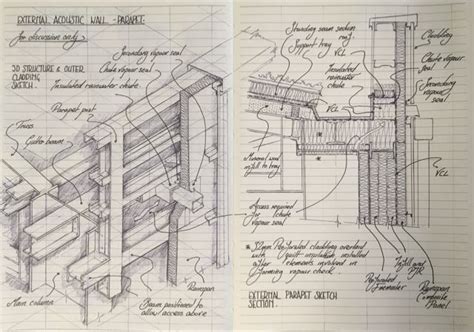 EXTERNAL ACOUSTIC WALL - PARAPET.
for discussion only
3D STRUCTURE & OUTER
CLADDING
SKETCH.
Secondary vapour seal
Chute vapour seal
Insulated rainwater chute
Parapet post
Truss
Gutter beam
Main column
Beam positioned to
allow access above
Standing seam section
roof
Support tray
VCL
Insulated
rainwater
chute
VCL
Cladding
Chute vapour
seal
Secondary
vapour
seal
VCL
Mineral wool
infill to tray
Access required
for chute
vapour seal
* 32mm Perforated cladding overlaid
with quilt insulation installed
after elements involved in
forming vapour check
EXTERNAL PARAPET SKETCH
SECTION.
Perforated
Infill and
Composite
Panel